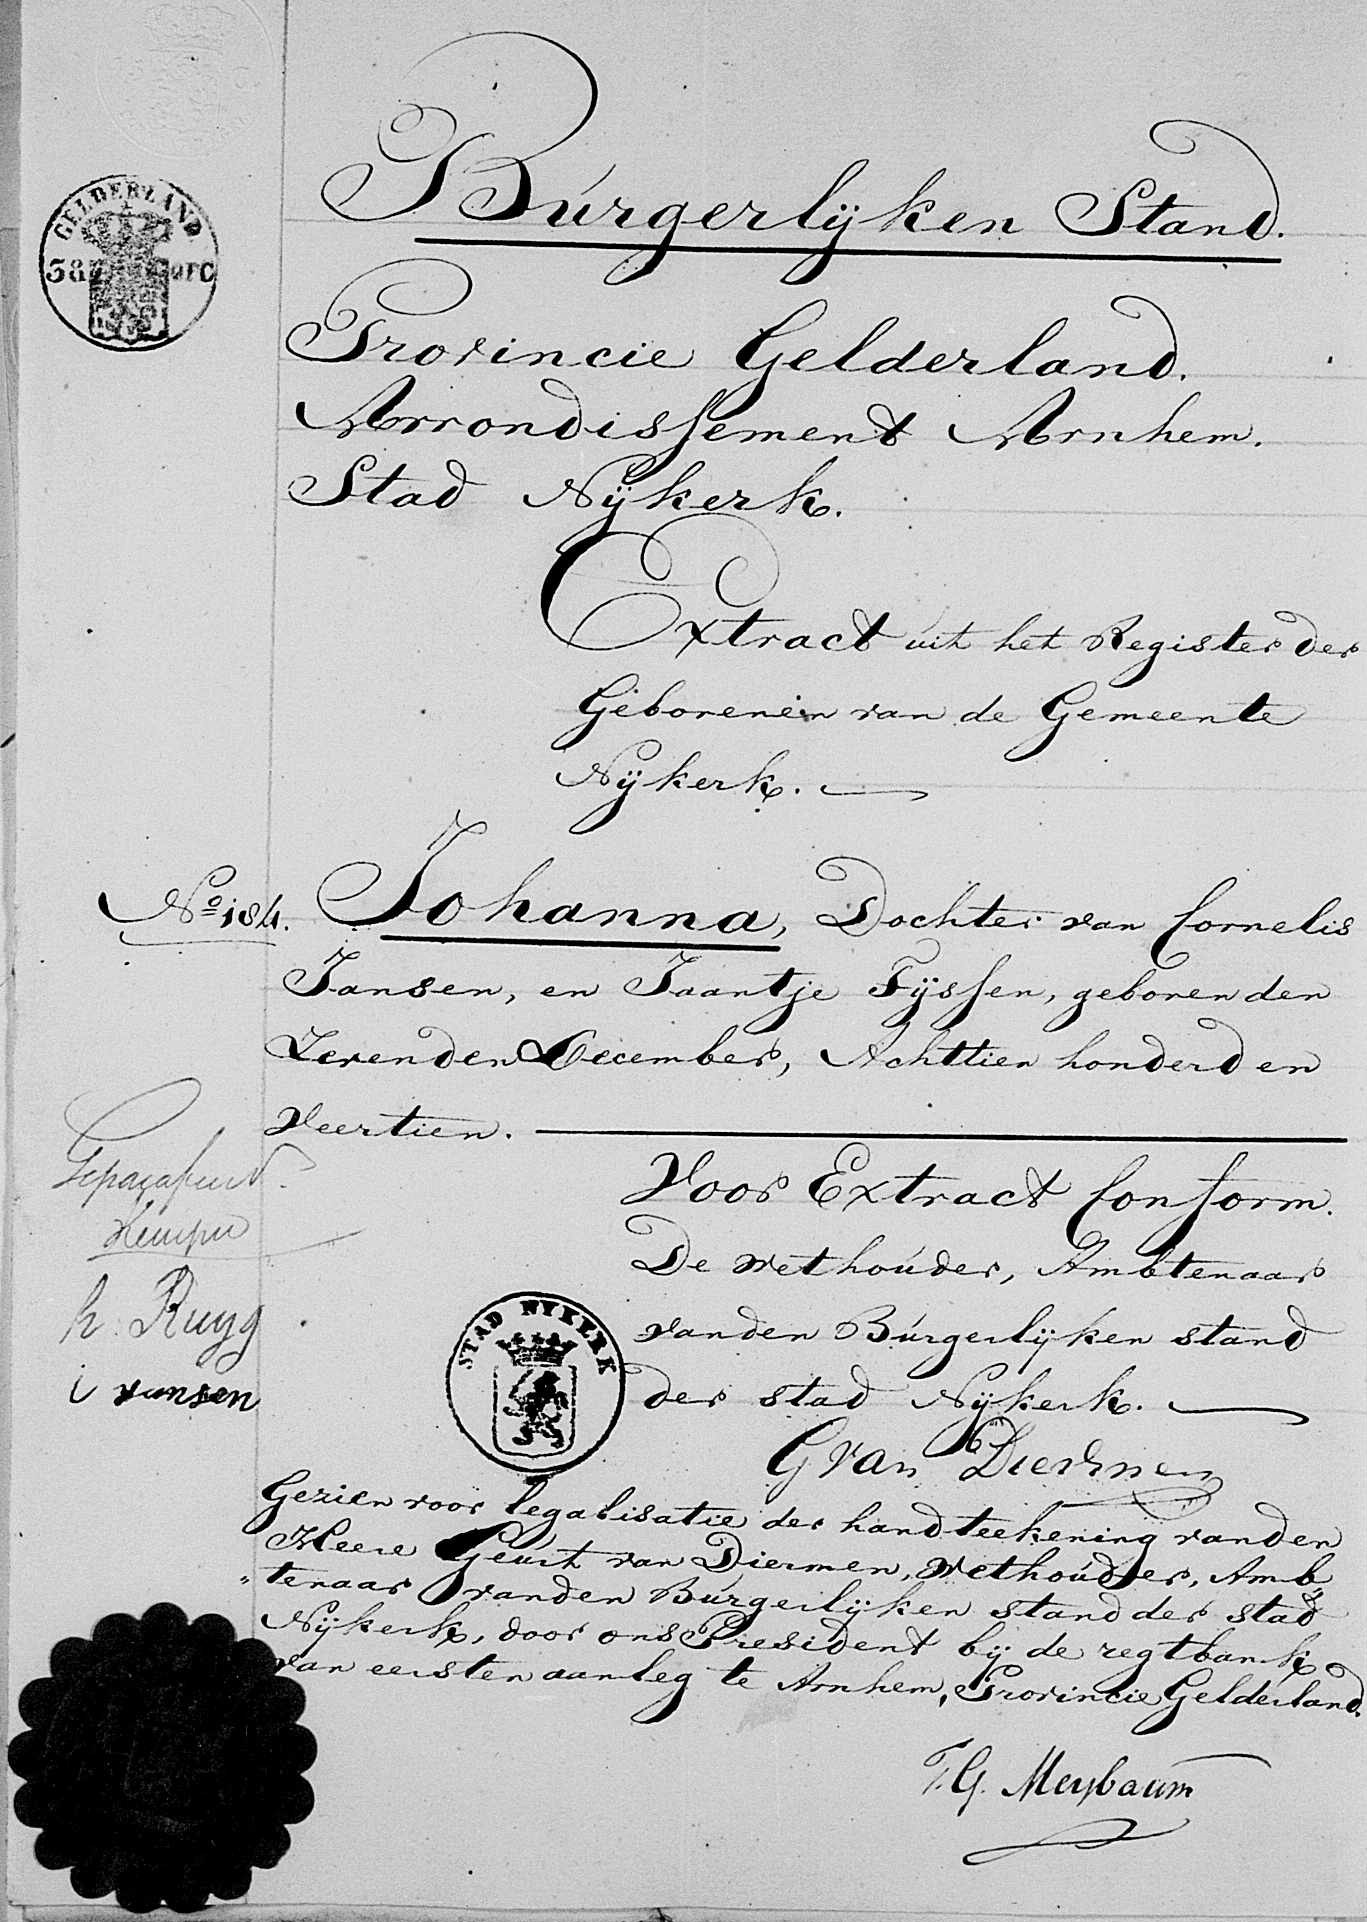 GELDERLAND
Búrgerlijken Stand.
Provincie Gelderland.
Arrondissement Arnhem.
Stad Nijkerk.
Extract úit het Register der
Geborenen van de Gemeente
Nijkerk.
No 184. Johanna, Dochter van Cornelis
Jansen, en Jaantje Fijssen, geboren den
Zevenden December, Achttien honderd en
Veertien.
Geparafeerd.
Voor Extract Conform.
De Wethoúder, Ambtenaar
h. Ruyg
van den Búrgerlijken stand
STAD NYKERK
i Jansen
der stad Nijkerk.
G van Diermen
Gezien voor legalisatie der handteekening van den
Heere Geurt van Diermen, Wethoúder, Amb„
„tenaar van den Búrgerlijken stand der stad
Nijkerk, door ons President bij de regtbank
van eersten aanleg te Arnhem, Provincie Gelderland.
T.G. Meybaum